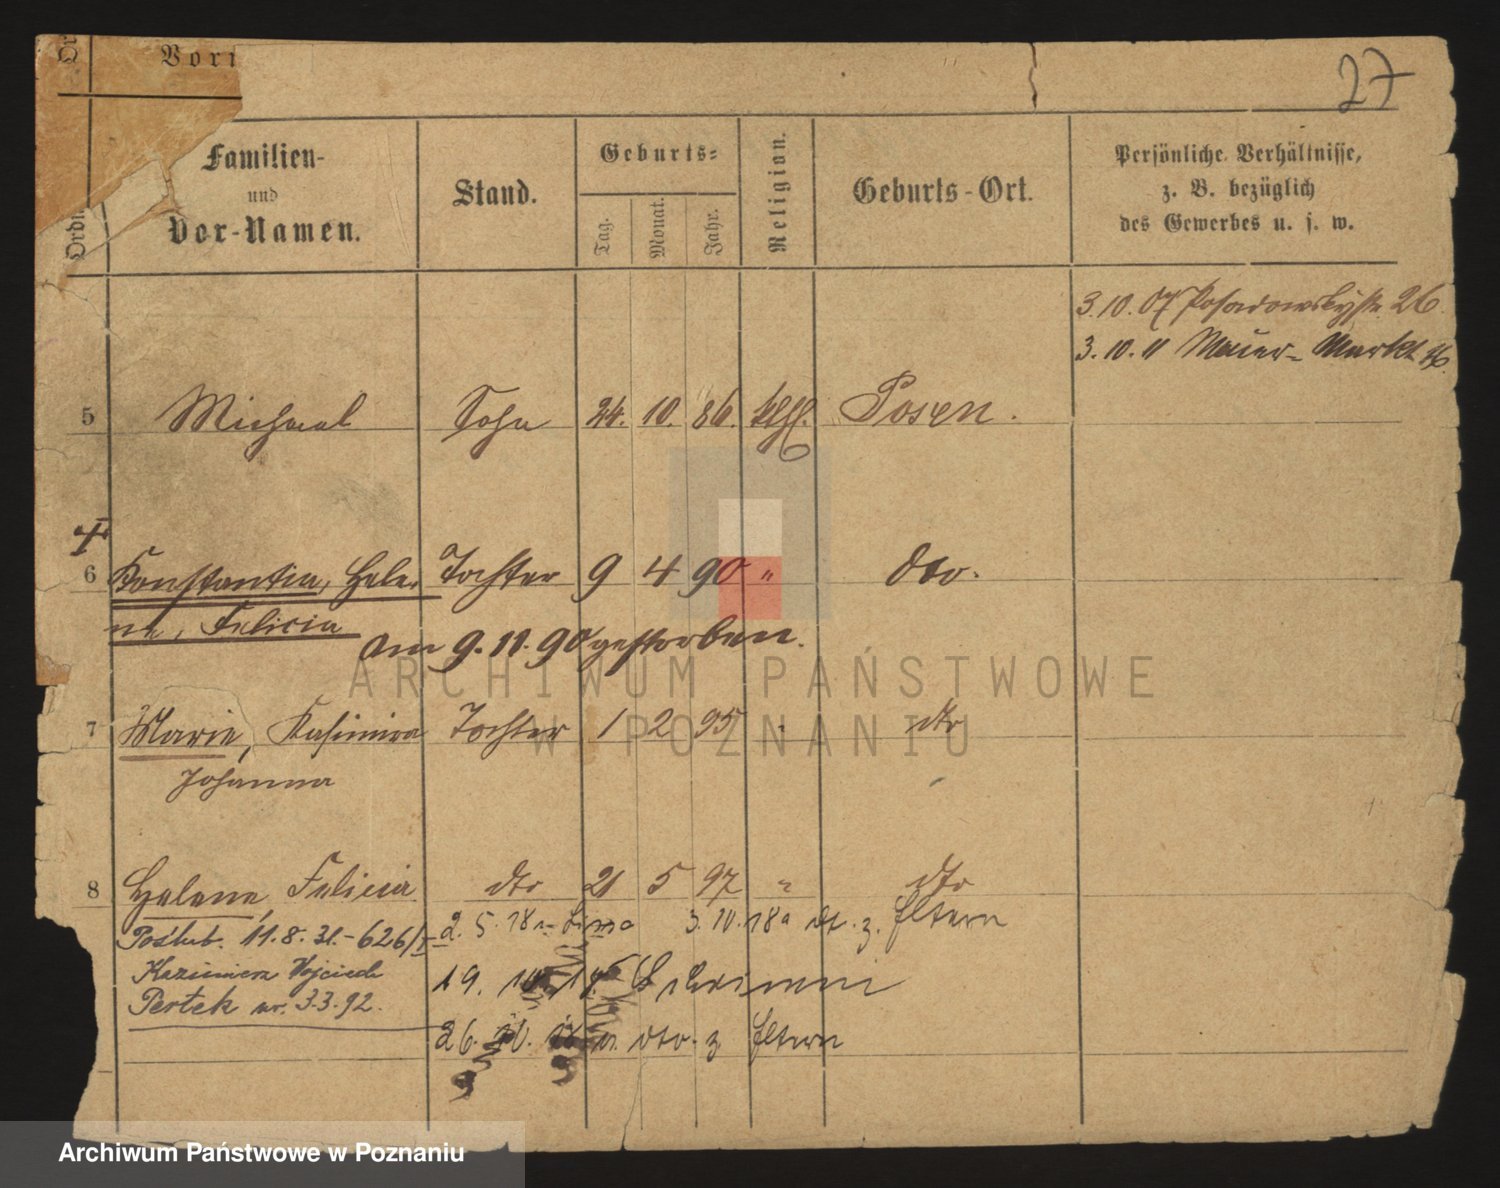 27
Familien-
und
Vor-Namen.
Stand.
Geburts-
Tag.
Monat.
Jahr.
Religion.
Geburts-Ort.
Persönliche Verhältnisse,
z. B. bezüglich
des Gewerbes u. s. w.
3.10.07 Posadowskystr. 26.
3.10.11 Markt
5 Michael Sohn 24. 10. 86. kthl. Posen.
6 Konstantia, Hele- Tochter 9 4 90 " dto.
na, Felicia
am 9.11.90 gestorben.
7 Marie, Kasimira Tochter 1 2 95 " dto
Johanna
8 Helene, Felicia dto 21 5 97 " dto
Poślub. 11.8.31.-626/
2. 5. 18 3.10.18 z. Eltern
Kazimierz Wojciech
19. Schrimm
Pertek ur. 3.3.92.
26. dto. z. Eltern
ARCHIWUM PAŃSTWOWE
W POZNANIU
Archiwum Państwowe w Poznaniu